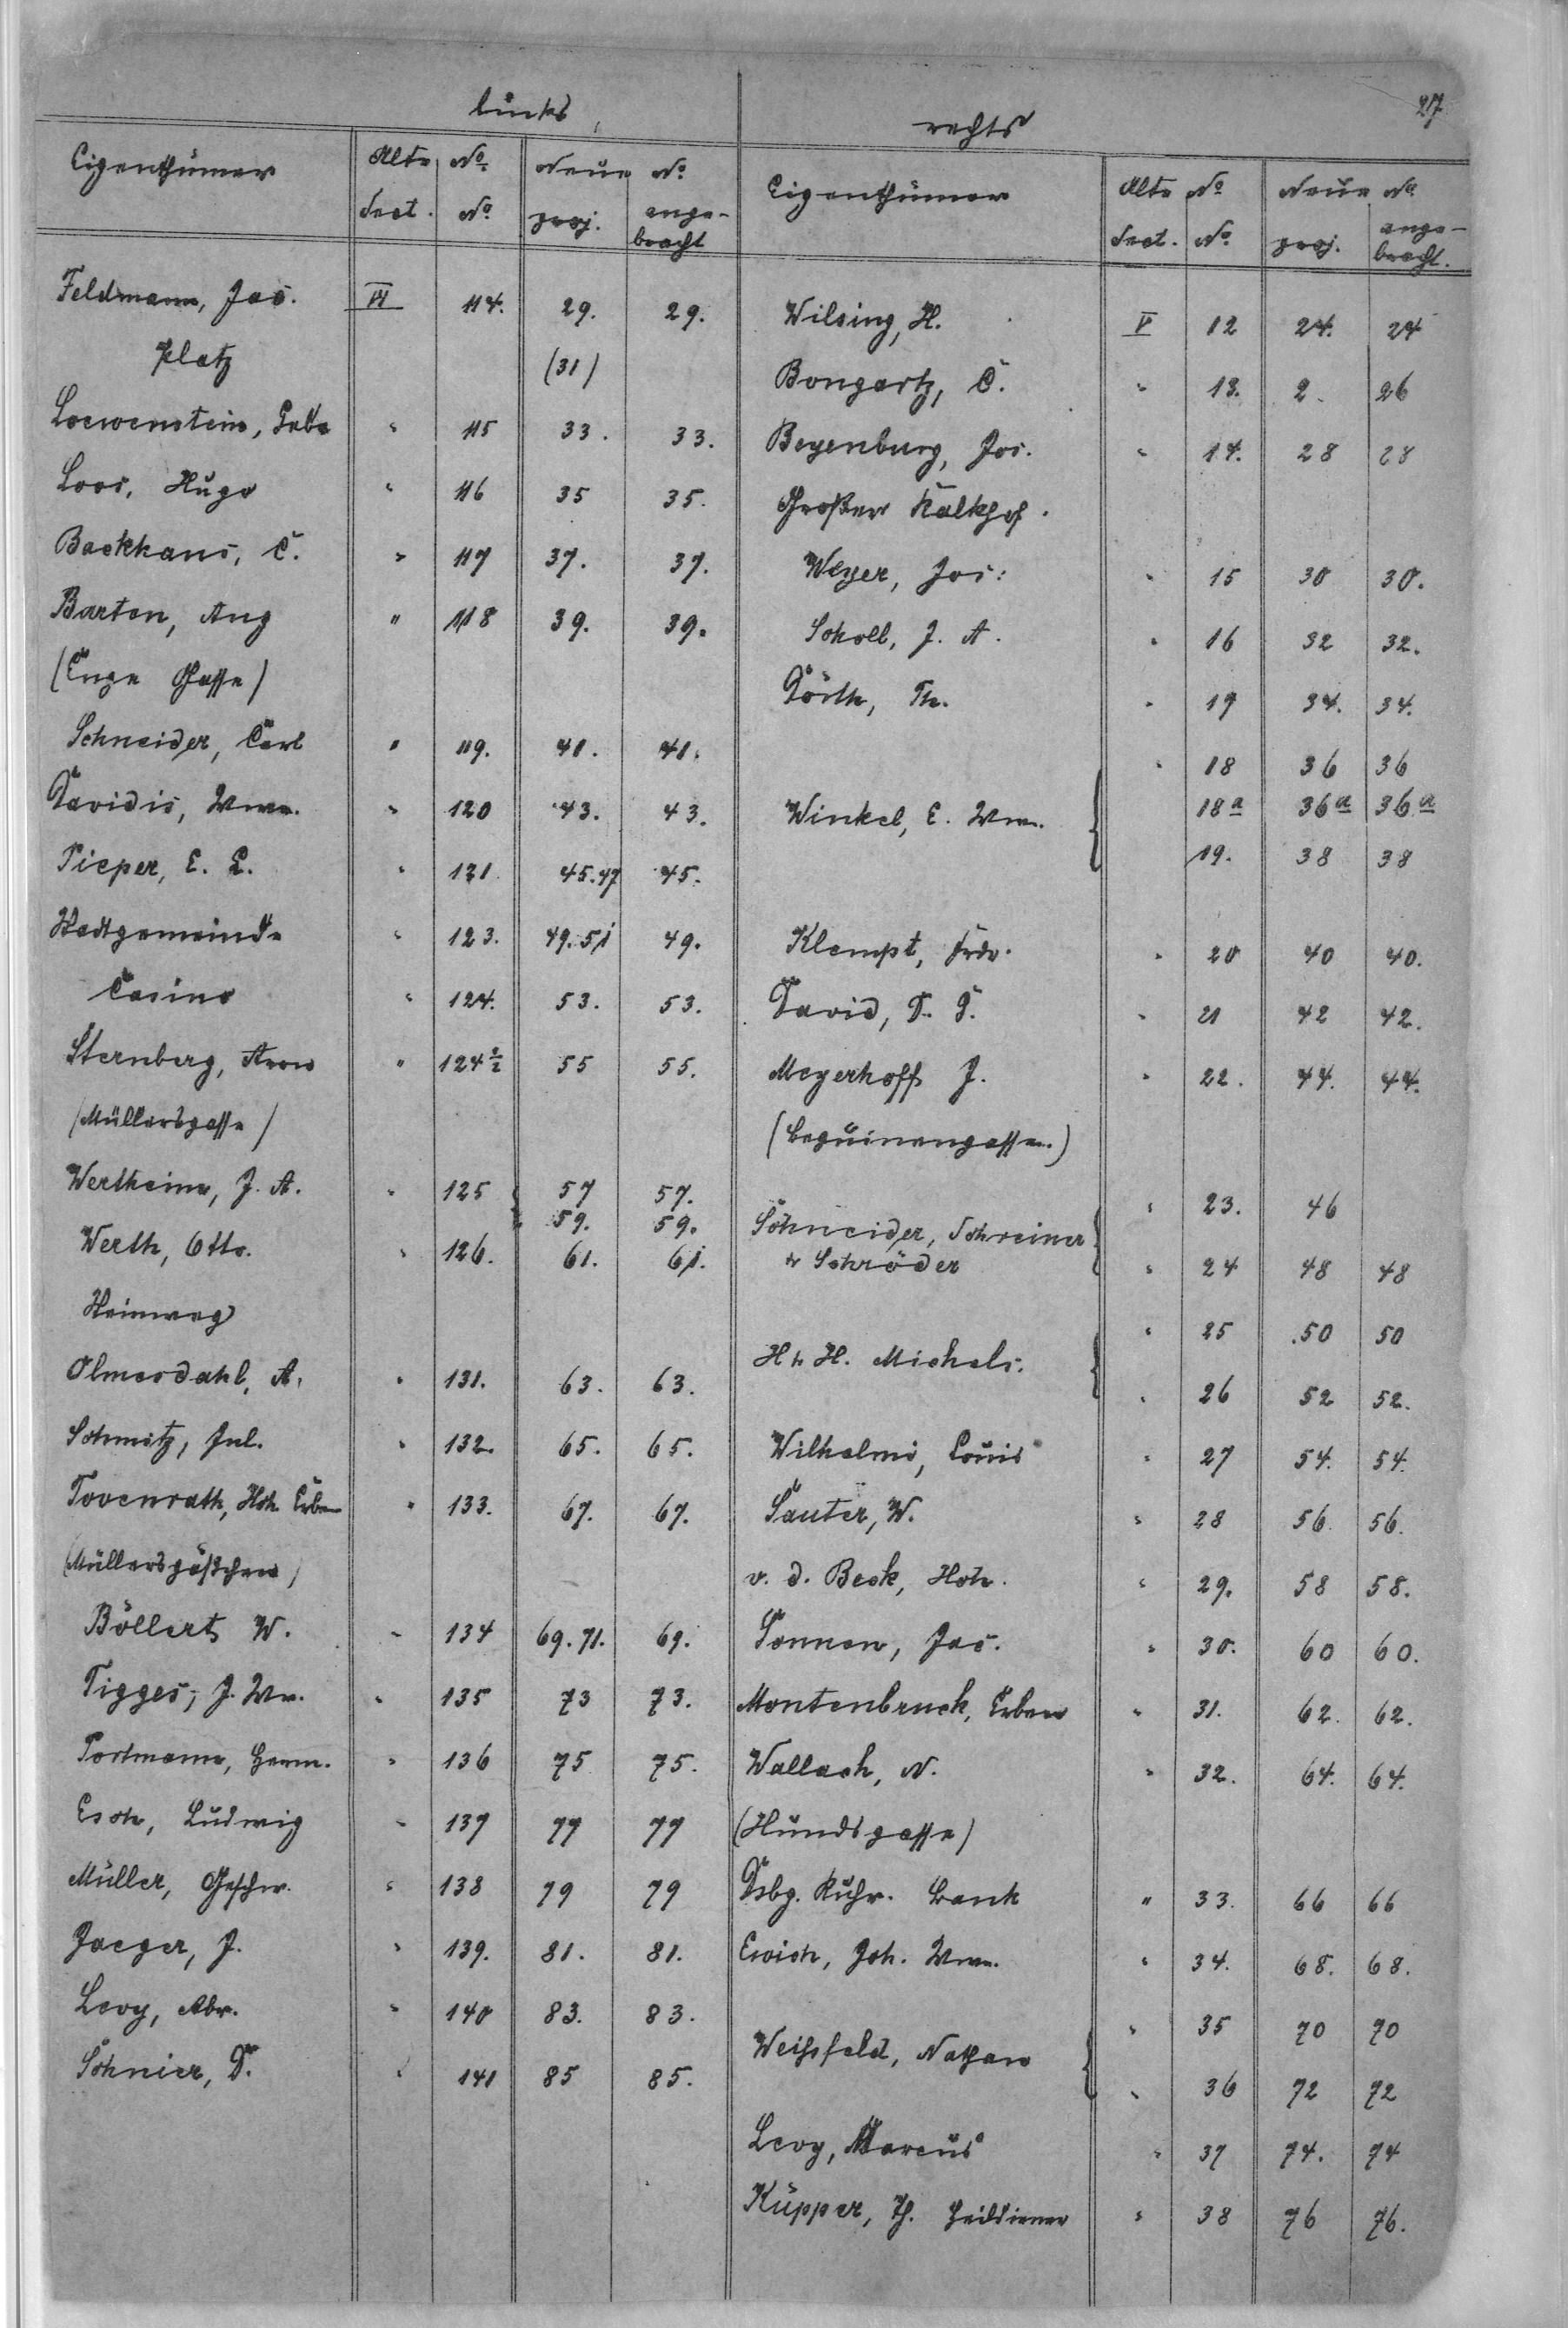 27
links
rechts
Eigenthümer Alte No. Neue No. Eigenthümer Alte No Neue No.
Sect. No. proj. ange- Sect. No. proj. ange-
bracht bracht.
Feldmann, Jac. VI 114. 29. 29. Wilsing, H. V 12 24. 24
Platz (31) Bongartz, C. " 13. 2 26
Loewenstein, Gebr " 115 33. 33. Beyenburg, Jos. " 14. 28 28
Loos, Hugo " 116 35 35. Großer Kalkhof.
Backhaus, C. " 117 37. 37. Weyer, Jos: " 15 30 30.
Barten, Aug " 118 39. 39. Scholl, J. A. " 16 32 32.
(Enge Gasse) Dörth, Th. " 17 34. 34.
Schneider, Carl " 119. 41. 41. " 18 36 36
Davidis, Wwe. " 120 43. 43. Winkel, E. Wm. 18a 36a 36a
Pieper, E. L. " 121 45.47 45. 19. 38 38
Stadtgemeinde " 123. 49.51 49. Klempt, Frdr. " 20 40 40.
Casino " 124. 53. 53. David, D. D. " 21 42 42.
Sternberg, Aron " 124½ 55 55. Meyerhoff J. " 22. 44. 44.
(Müllersgasse) (Beguinengasse.)
Wertheim, J. A. " 125 57 57. " 23. 46
59. 59. Schneider, Schreiner
Werth, Otto. " 126. 61. 61. & Schröder " 24 48 48
Steinweg " 25 50 50
H & H. Michels.
Olmesdahl, A. " 131. 63. 63. " 26 52 52.
Schmitz, Jul. " 132. 65. 65. Wilhelmi, Louis " 27 54. 54.
Tovenrath, Hch. Erben " 133. 67. 67. Sauter, W. " 28 56. 56.
(Müllersgäßchen) v. d. Beck, Hch. " 29. 58 58.
Böllert W. " 134 69.71. 69. Sonnen, Jac. " 30. 60 60.
Tigges, J. Wm. " 135 73 73. Montenbruck, Erben " 31. 62. 62.
Portmann, Herm. " 136 75 75. Wallach, N. " 32. 64. 64.
Esch, Ludwig " 137 77 77 (Hundsgasse)
Müller, Geschw. " 138 79 79 Dsbg. Ruhr. Bank " 33. 66 66
Jaeger, J. " 139. 81. 81. Ewich, Joh. Wwe. " 34. 68. 68.
Levy, Abr. " 140 83. 83. " 35 70 70
Weihsfeld, Nathan
Schnier, D. " 141 85 85. " 36 72 72
Levy, Marcus " 37 74. 74
Küpper, Th. Heildiener " 38 76 76.